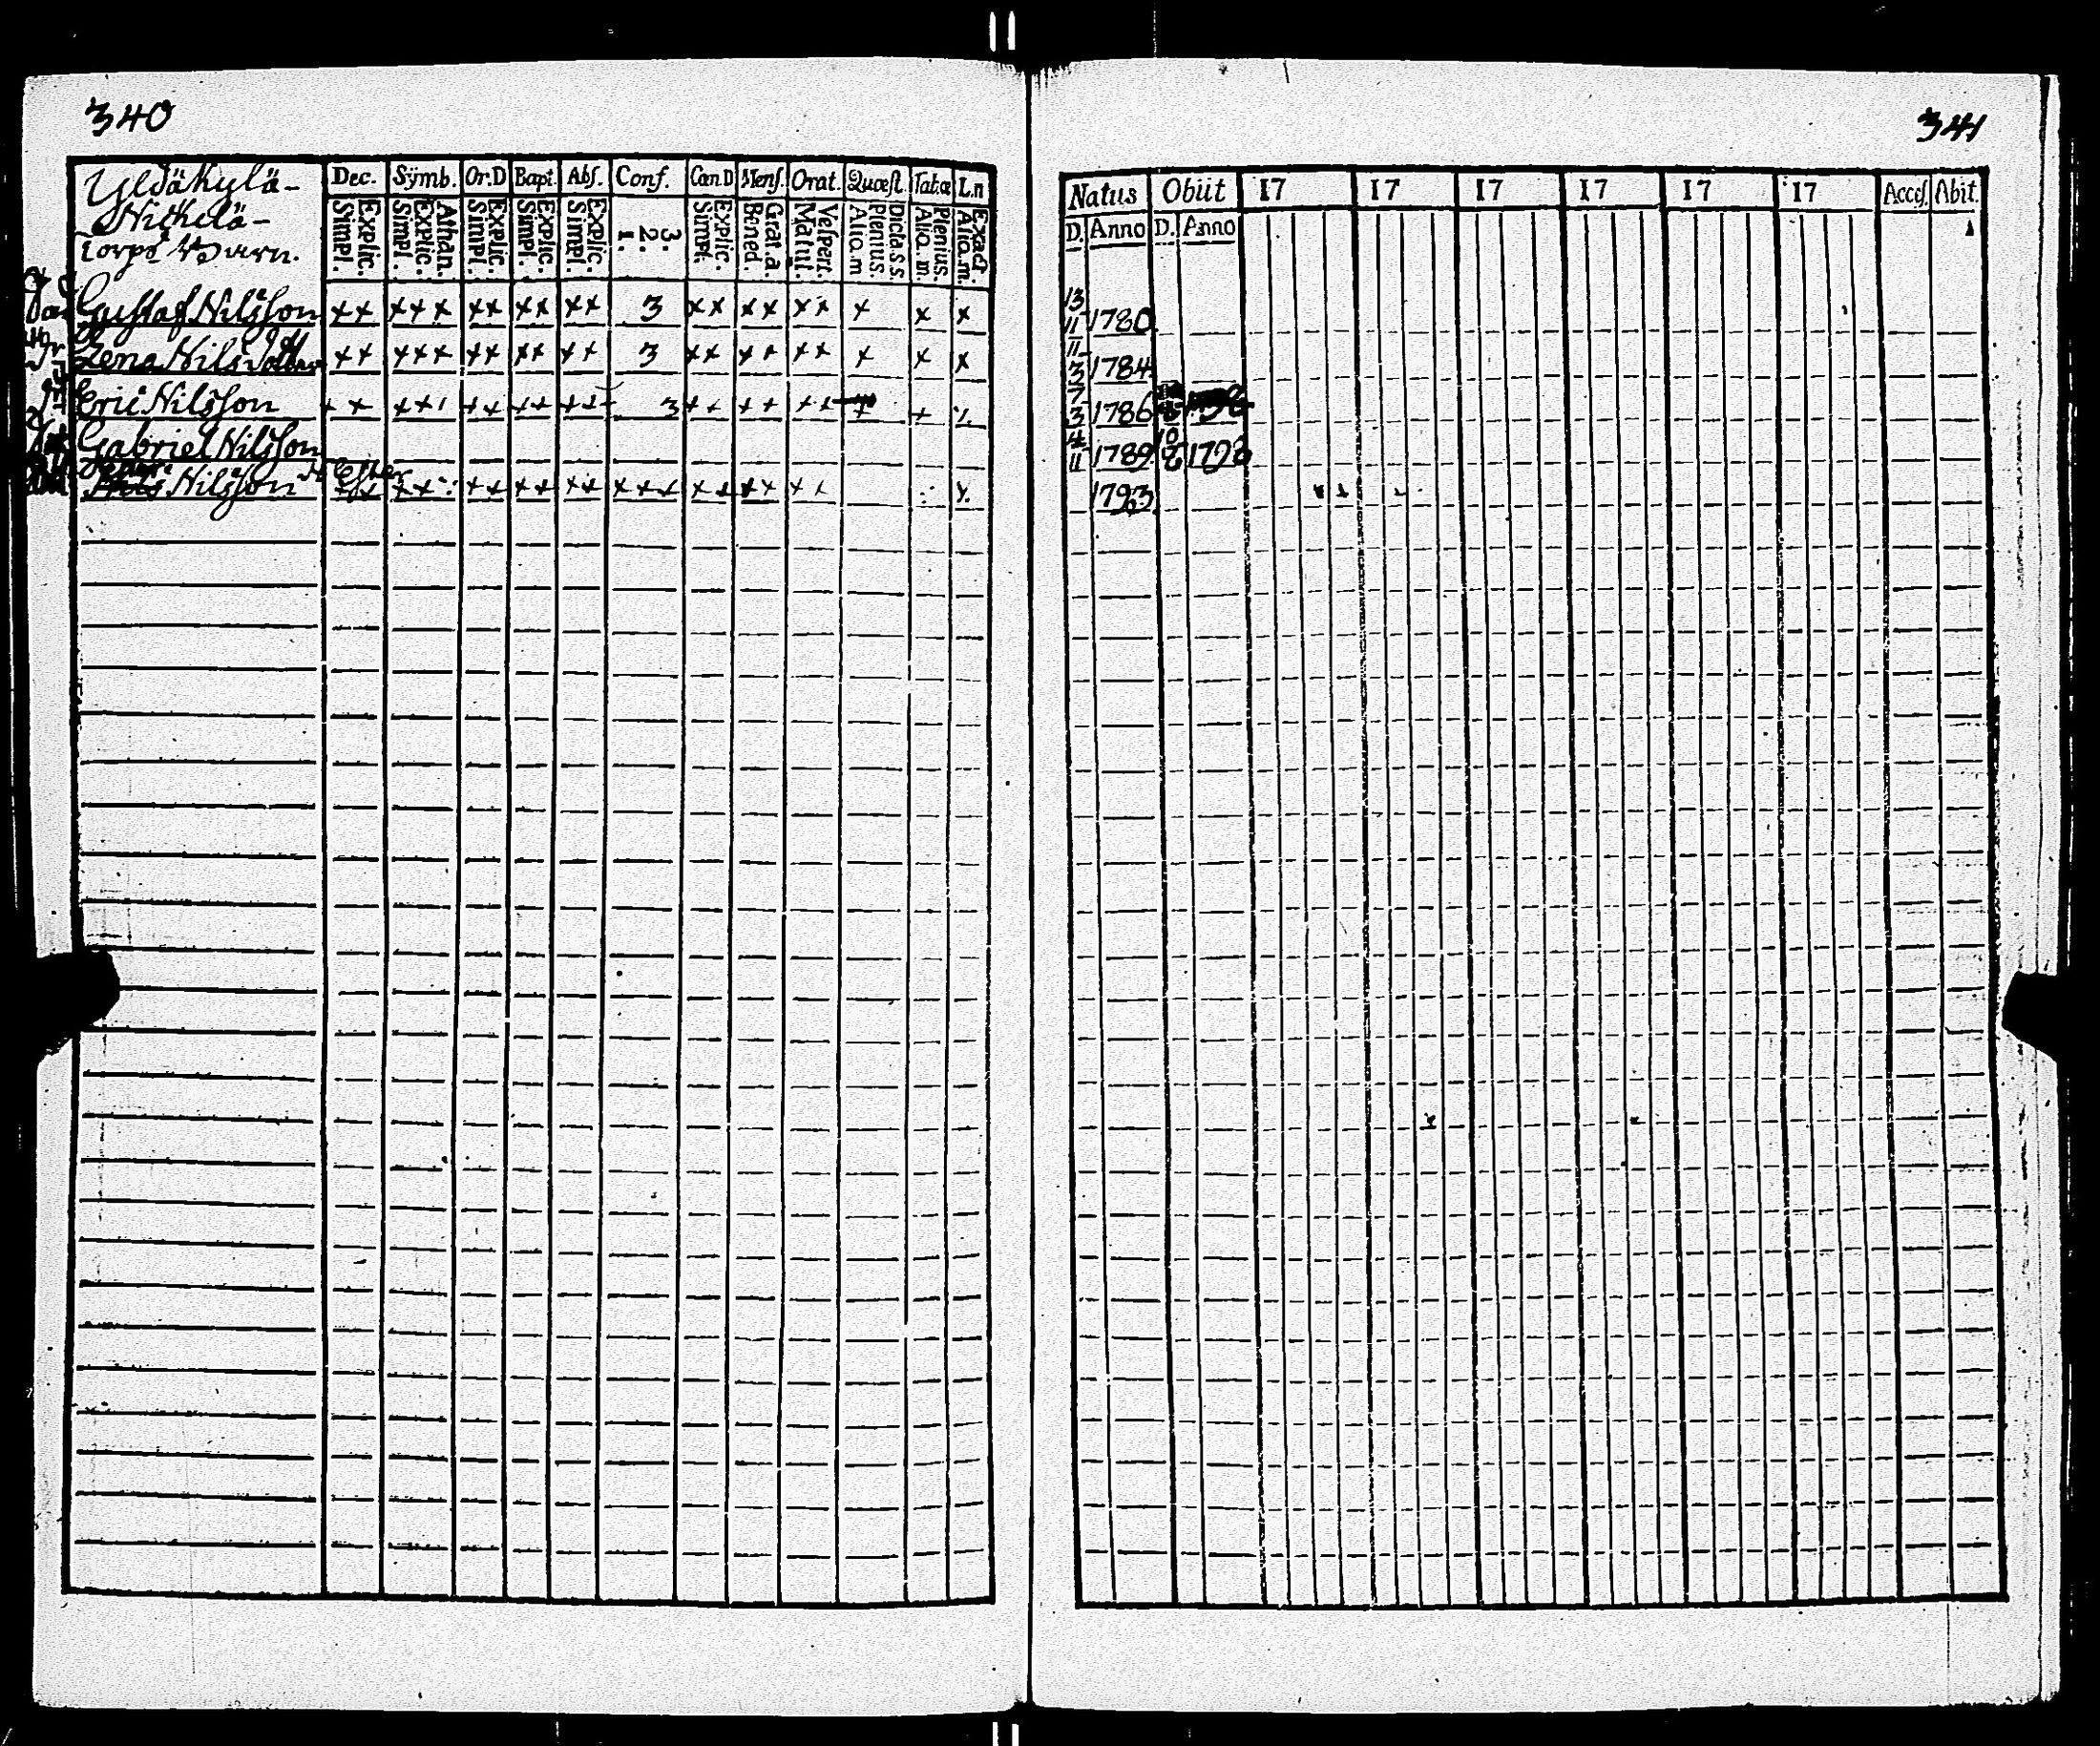 340
Yldäkylä-
Nickelä-
Torps
Dec. Symb. Or.D Bapt. Abs. Conf. Can.D Mens. Orat. Quæst. Tab.æ L.n
Simpl. Explic. Simpl. Explic. Athan. Simpl. Explic. Simpl. Explic. Simpl. Explic. 1. 2. 3. Simpl. Explic. Bened. Grat.a. Matut. Vespert. Alio.m Plenius. Dicta.s.s. Alio.m. Plenius. Alio.m. Exact
Gustaf Nilsson ×× ××× ×× ×× ×× 3 ×× ×× ×× × × ×
Lena Nils ×× ××× ×× ×× ×× 3 ×× ×× ×× × × ×
Eric Nilsson 3
Gabriel Nilsson
Nilsson
341
Natus Obiit 17 17 17 17 17 17 Acces. Abit.
D. Anno D. Anno
13 11 1780
11 3 1784
7 3 1786
4 11 1789
1793